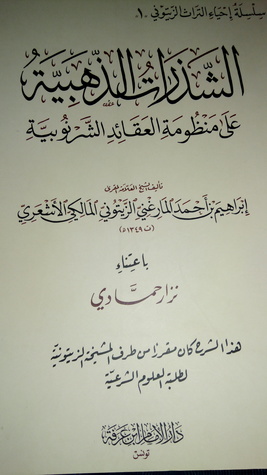 سلسلة إحياء التراث الزيتوني .١.
الشذرات الذهبية
على منظومة العقائد الشرنوبية
تأليف الشيخ العلامة المقرئ
إبراهيم بن أحمد المارغني الزيتوني المالكي الأشعري
(ت ١٣٤٩ھ)
باعتناء
نزار حمادي
هذا الشرح كان مقررا من طرف المشيخة الزيتونية
لطلبة العلوم الشرعية
دار الإمام ابن عرفة
تونس